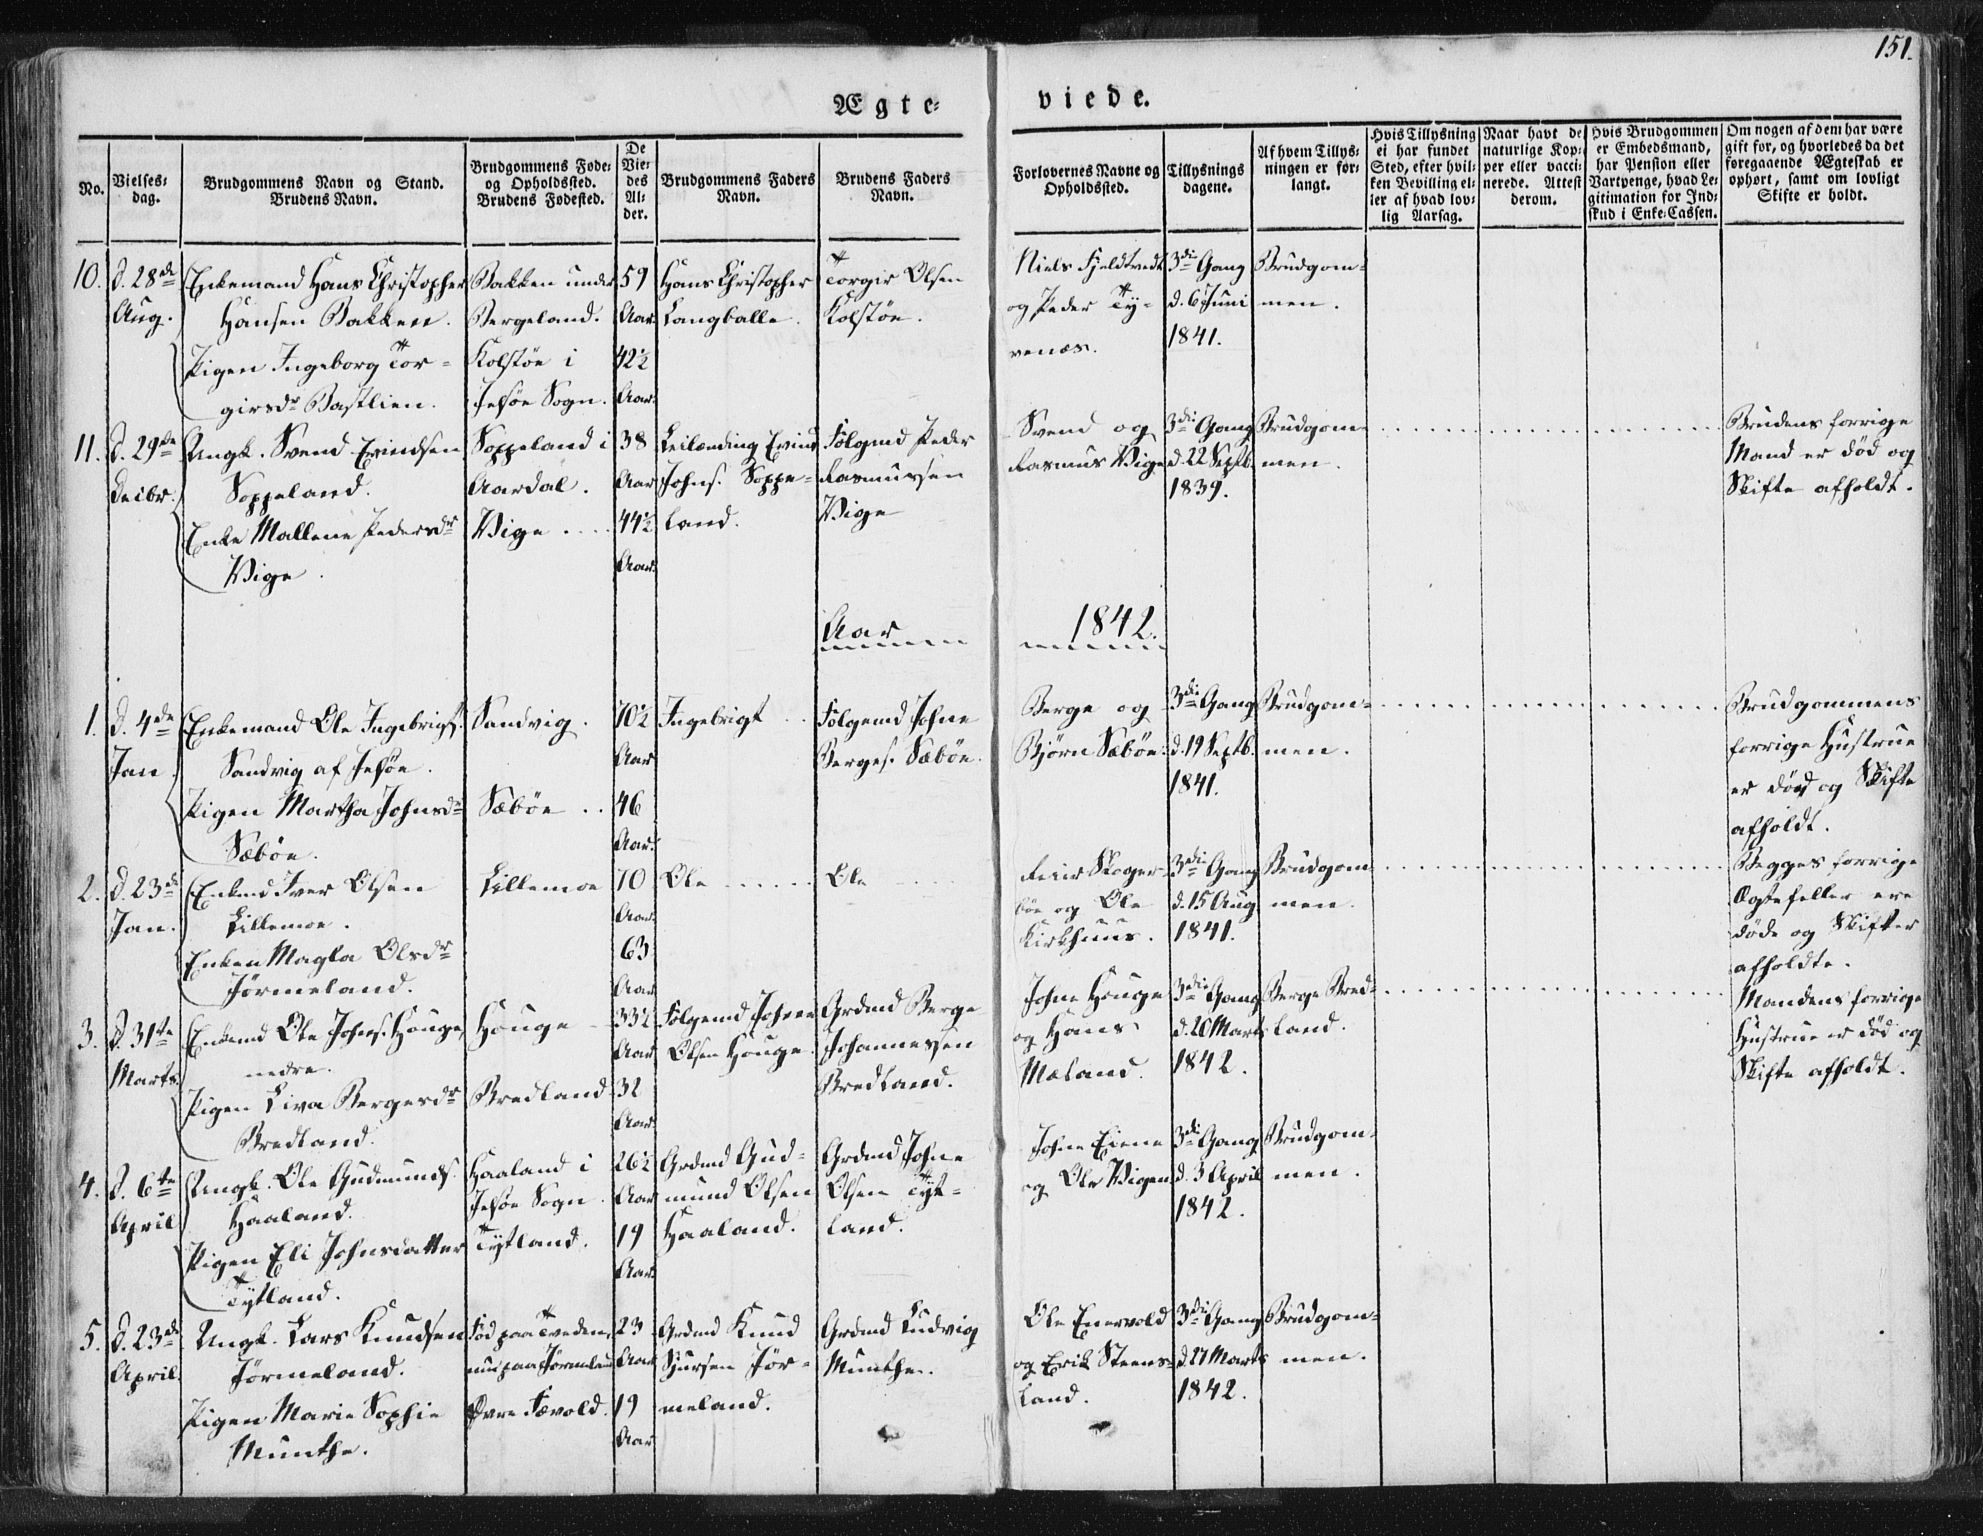 151.
Ægte-
viede.
No.
Vielses-
dag.
Brudgommens Navn og Stand.
Brudens Navn.
Brudgommens Føde-
og Opholdssted.
Brudens Fødested.
De
Vie-
des
Al-
der.
Brudgommens Faders
Navn.
Brudens Faders
Navn.
Forlovernes Navne og
Opholdssted.
Tillysnings
dagene.
Af hvem Tillys-
ningen er for-
langt.
Hvis Tillysning
ei har fundet
Sted, efter hvil-
ken Bevilling el-
ler af hvad lov-
lig Aarsag.
Naar havt de
naturlige Kop-
per eller vacci-
nerede. Attest
derom.
Hvis Brudgommen
er Embedsmand,
har Pension eller
Vartpenge, hvad Le-
gitimation for Ind-
skud i Enke-Cassen.
Om nogen af dem har være
gift før, og hvorledes da det
foregaaende Ægteskab er
ophørt, samt om lovligt
Skifte er holdt.
10.
d. 28de
Aug.
Enkemand Hans Christopher
Hansen Bakken.
Pigen Ingeborg Tor-
girsdr Bastlien.
Bakken under
Bergeland.
Kolstøe i
Jelsøe Sogn.
59
Aar
42½
Aar.
Hans Christopher
Langballe.
Torgir Olsen
Kolstøe.
Niels Fjeldtvedt
og Peder Ty-
venæs.
3die Gang
d. 6 Juni
1841.
Brudgom-
men.
11.
d. 29de
Decbr.
Ungk. Svend Evindsen
Soppeland.
Enke Mallene Pedersdr
Vige.
Soppeland i
Aardal.
Vige ....
38
Aar
44½
Aar.
Leilænding Evind
Johns. Soppe-
land.
Folgemd Peder
Rasmussen
Vige
Svend og
Rasmus Vige
3die Gang
d. 22 Septb.
1839.
Brudgom-
men.
Brudens forrige
Mand er død og
Skifte afholdt.
Aar
1842.
1.
d. 4de
Jan.
Enkemand Ole Ingebrigts.
Sandvig af Jelsøe.
Pigen Martha Johnsdr
Sæbøe.
Sandvig.
Sæbøe ..
70½
Aar
46
Aar.
Ingebrigt ..
Folgemd Johne
Berges. Sæbøe.
Berge og
Bjørn Sæbøe.
3die Gang
d. 19 Septb.
1841.
Brudgom-
men.
Brudgommens
forrige Hustrue
er død og Skifte
afholdt.
2.
d. 23de
Jan.
Enkemd Iver Olsen
Lillemoe.
Enken Magla Olsdr
Jørmeland.
Lillemoe
70
Aar.
63
Aar
Ole
Ole
Reier Skoger-
bøe og Ole
Kirkhuus.
3die Gang
d. 15 Aug
1841.
Brudgom
men.
Begges forrige
Ægtefeller ere
døde og Skifter
afholdte.
3.
d. 31te
Marts.
Enkemd Ole Johns. Houge
nedre.
Pigen Siva Bergesdr
Bredland.
Houge
Bredland
33½
Aar
32
Aar
Folgemd Johne
Olsen Houge.
Grdmd Berge
Johannessen
Bredland.
Johne Houge
og Hans
Mæland.
3die Gang
d. 20 Marts
1842.
Berge Bred-
land.
Mandens forrige
Hustrue er død og
Skifte afholdt.
4.
d. 6te
April
Ungk. Ole Gudmunds.
Haaland.
Pigen Eli Johnsdatter
Tytland.
Haaland i
Jelsøe Sogn
Tytland.
26½
Aar
19
Aar.
Grdmd Gud-
mund Olsen
Haaland.
Grdmd Johne
Olsen Tyt-
land.
Johne Eiene
og Ole Vigen
3die Gang
d. 3 April
1842.
Brudgom-
men.
5.
d. 23de
April.
Ungk. Lars Knudsen
Jørmeland.
Pigen Marie Sophie
Munthe.
Fød paa Tveden,
nu paa Jørmeland
Øvre Fævold.
23
Aar
19
Aar
Grdmd Knud
Sjursen Jør-
meland.
Grdmd Ludvig
Munthe.
Ole Enervold
og Erik Steens-
land.
3die Gang
d. 27 Marts
1842.
Brudgom-
men.